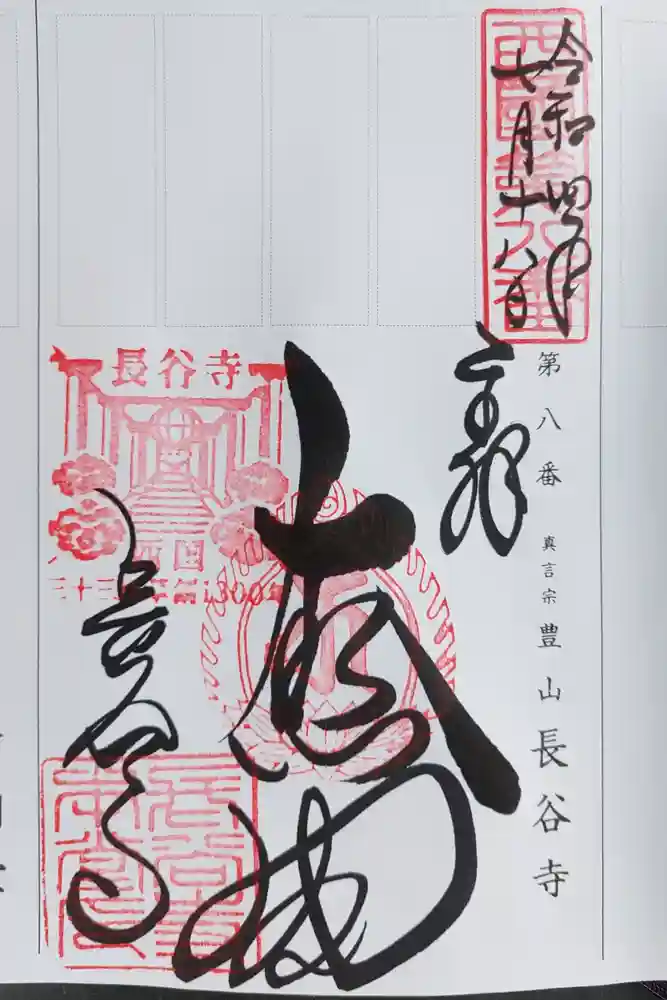 令和四年
七月十八日
西国第八番
第八番 真言宗 豊山 長谷寺
奉拝
大悲閣
長谷寺
西国
三十三所草創1300年
長谷寺